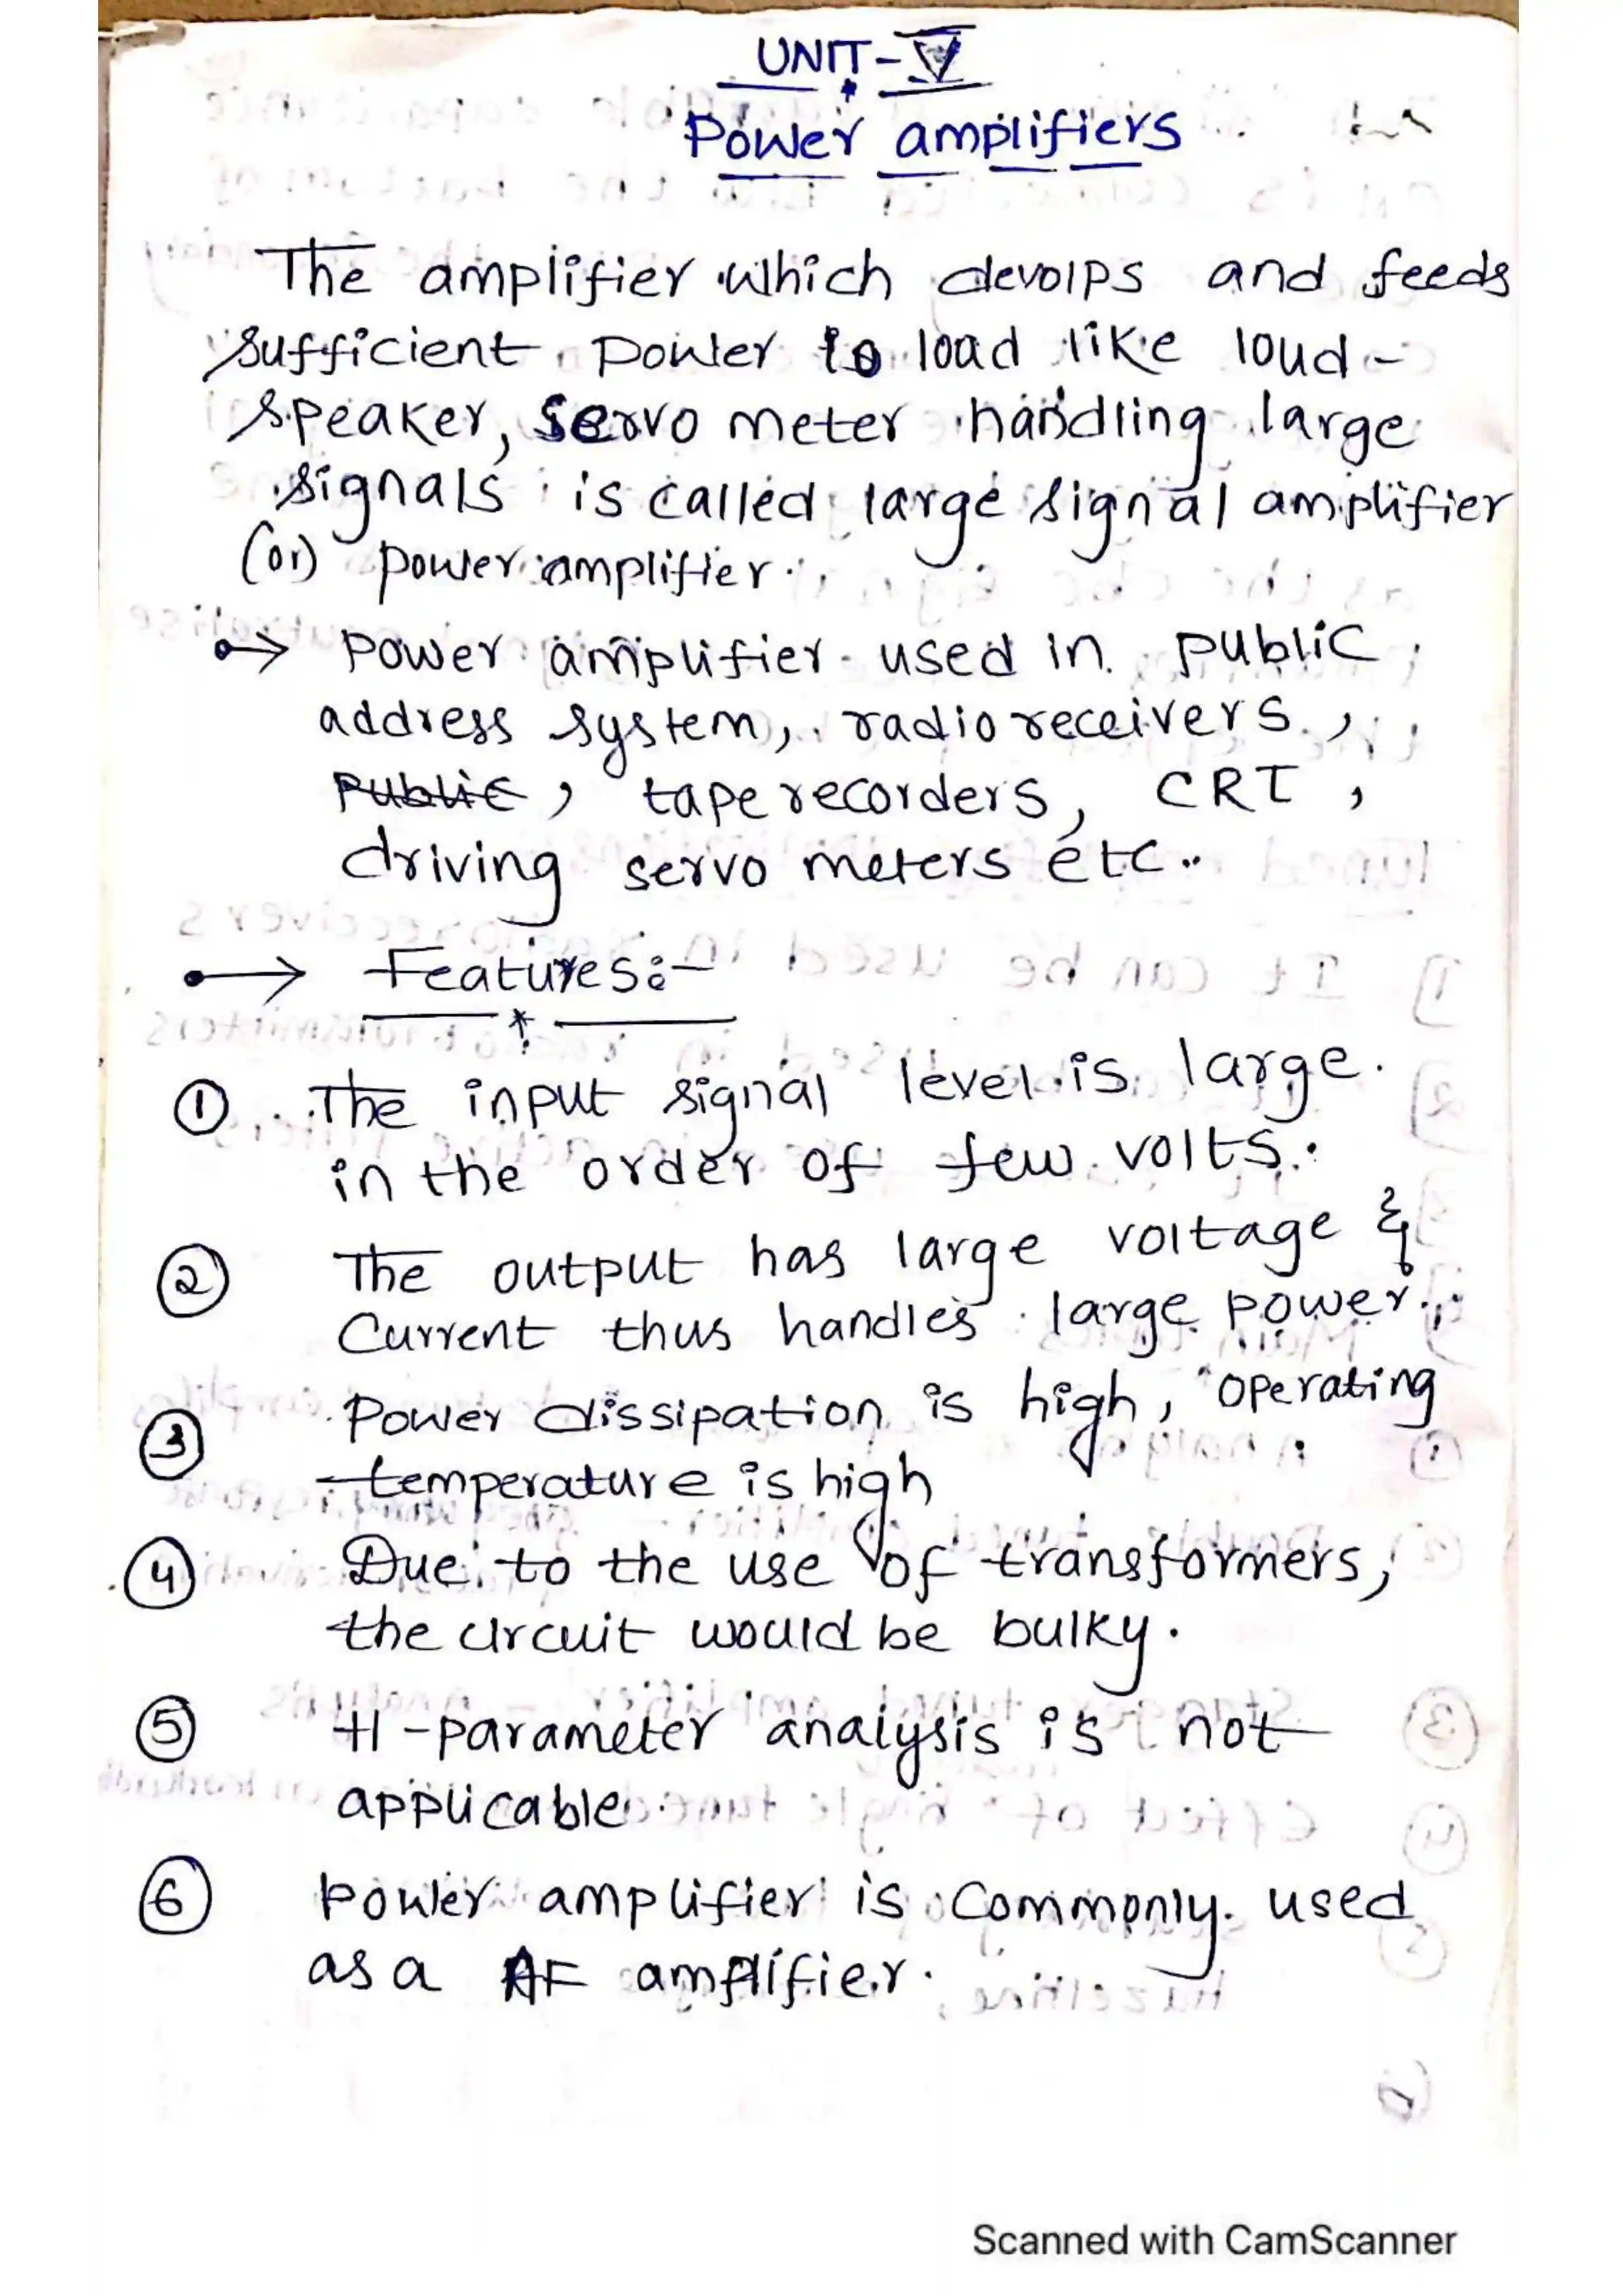 UNIT-V
Power amplifiers
The amplifier which devolps and feeds
sufficient power to load like loud-
speaker, servo meter handling large
signals is called large signal amplifier
(or) power amplifier.
→ power amplifier used in public
address system, radio receivers,
public, tape recorders, CRT,
driving servo meters etc..
→ Features:-
① The input signal level is large.
in the order of few volts.
② The output has large voltage &
Current thus handles large power.
③ Power dissipation is high, operating
temperature is high
④ Due to the use of transformers,
the circuit would be bulky.
⑤ H-parameter analysis is not
applicable.
⑥ power amplifier is commonly used
as a AF amplifier.
Scanned with CamScanner